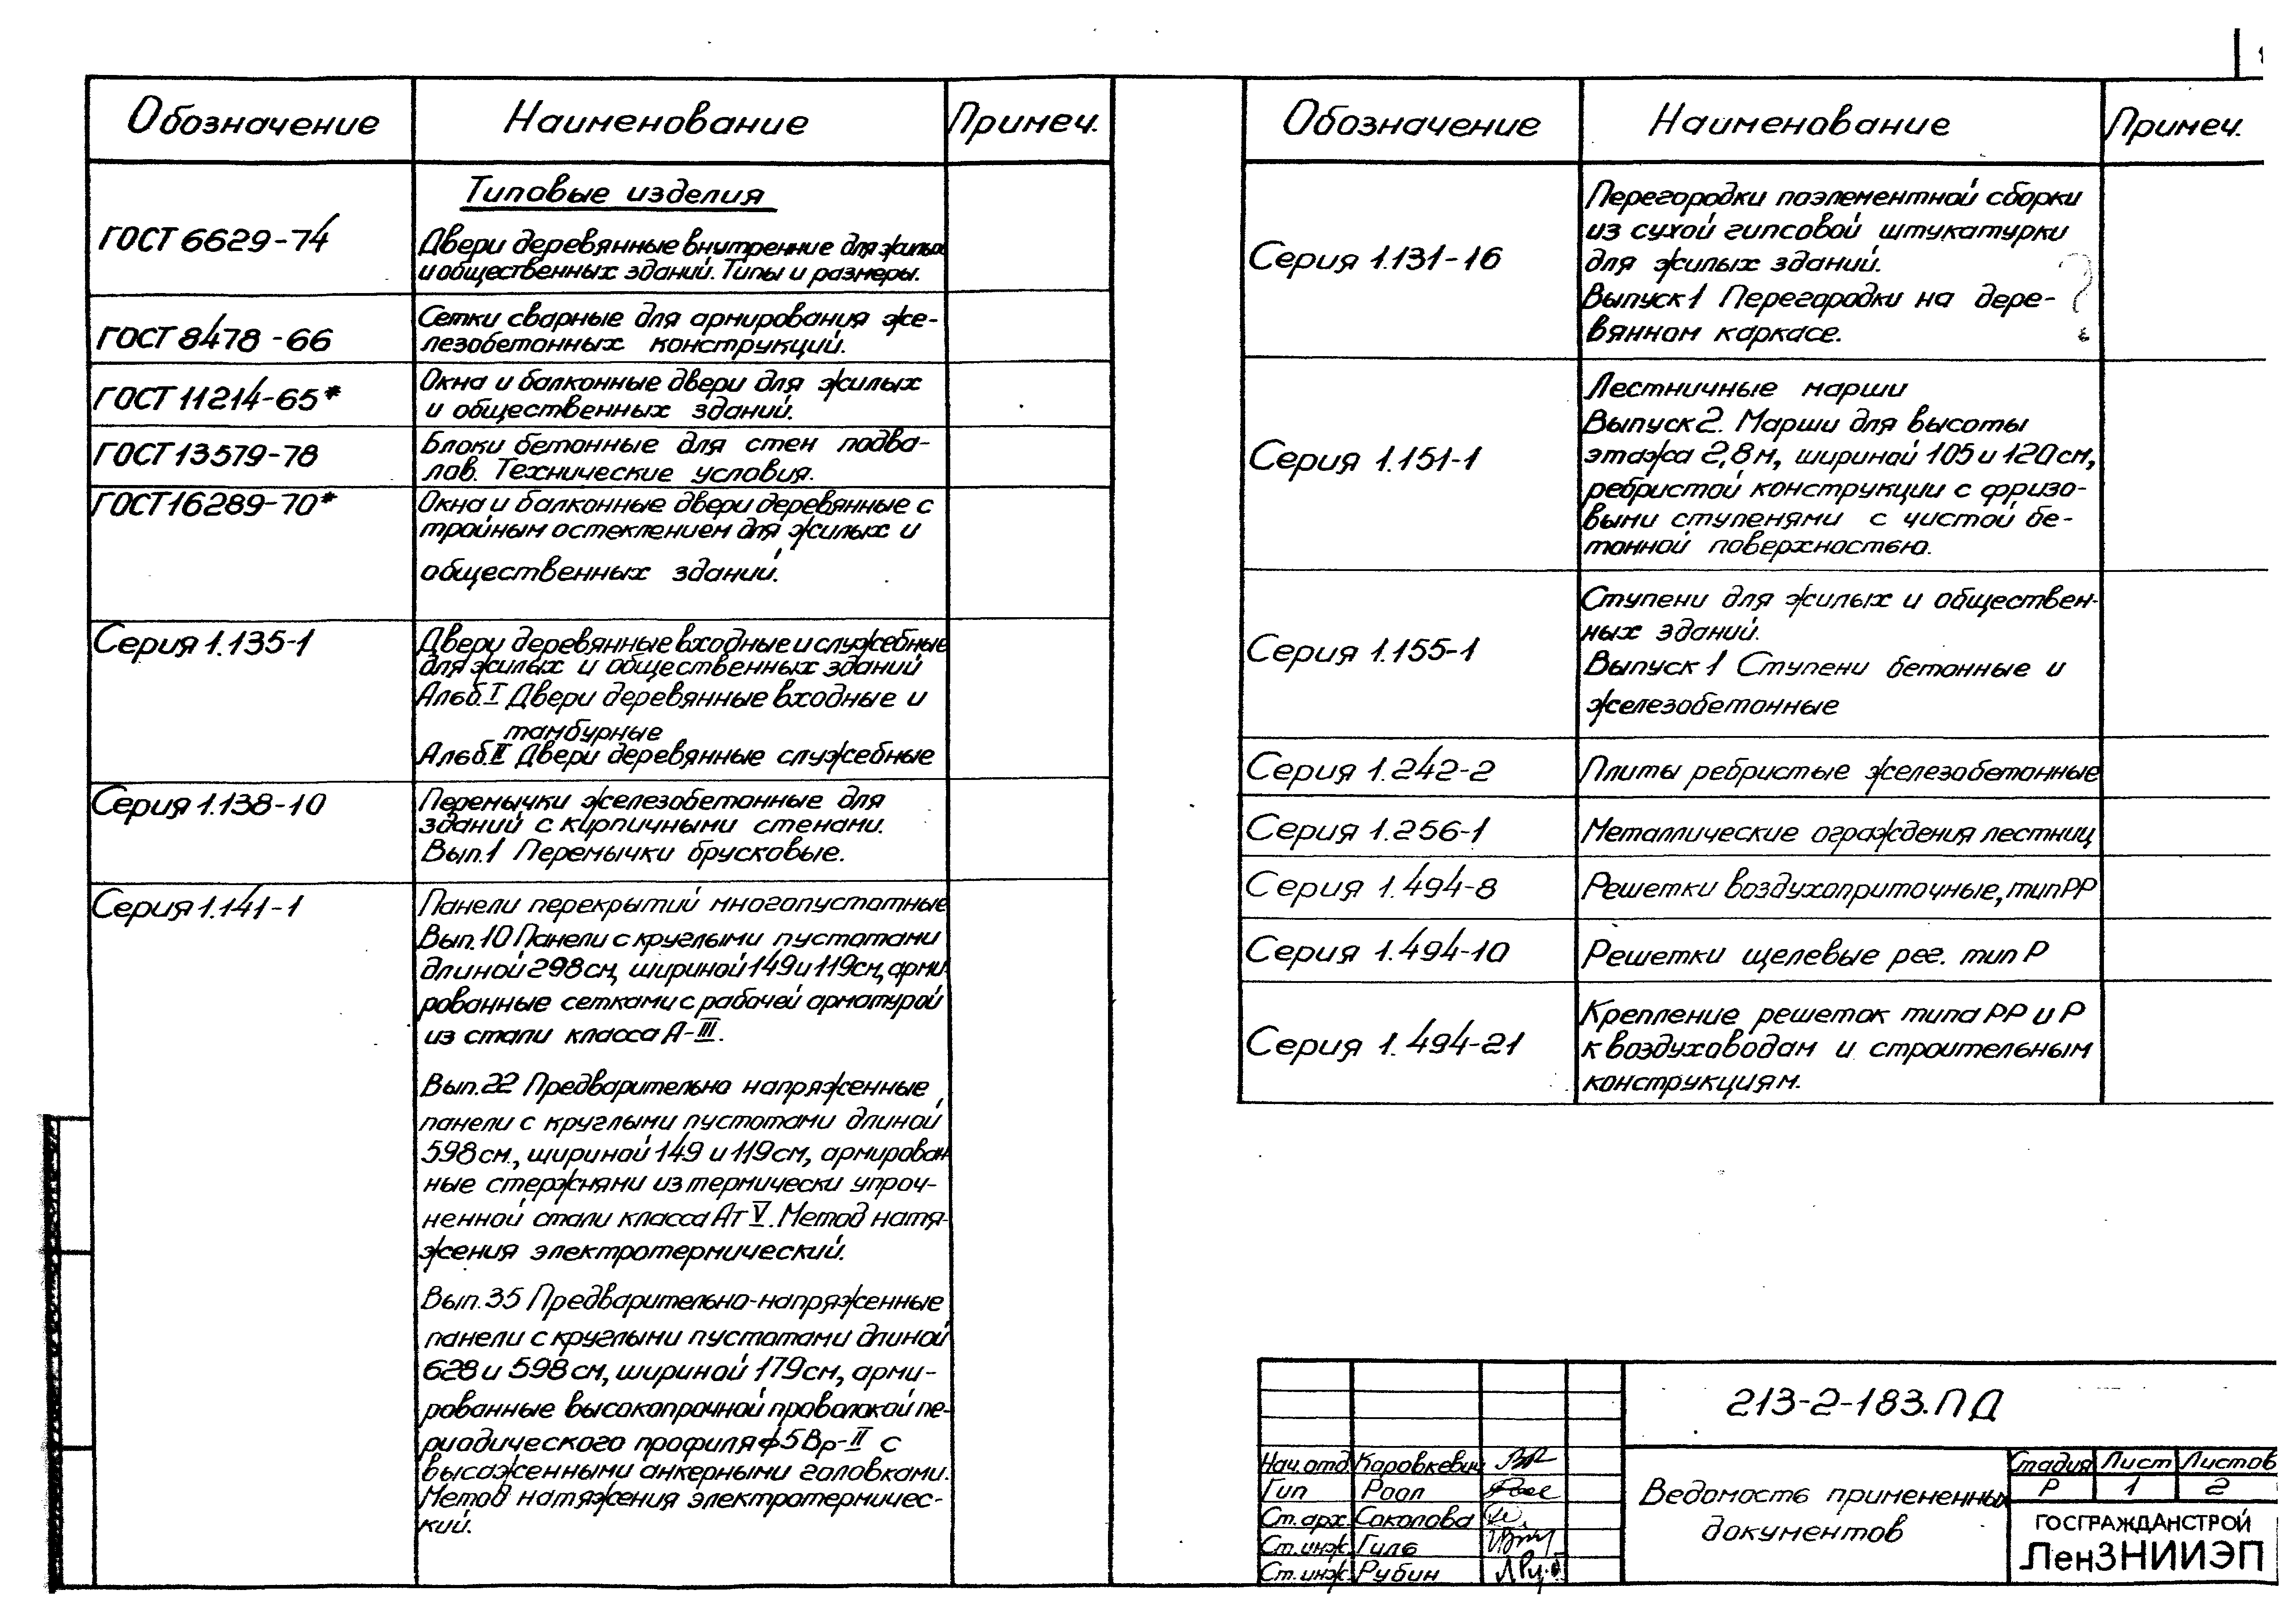 Обозначение Наименование Примеч.
Типовые изделия
ГОСТ 6629-74
Двери деревянные внутренние для жилых
и общественных зданий. Типы и размеры.
ГОСТ 8478-66
Сетки сварные для армирования же-
лезобетонных конструкций.
ГОСТ 11214-65*
Окна и балконные двери для жилых
и общественных зданий.
ГОСТ 13579-78
Блоки бетонные для стен подва-
лов. Технические условия.
ГОСТ 16289-70*
Окна и балконные двери деревянные с
тройным остеклением для жилых и
общественных зданий.
Серия 1.135-1
Двери деревянные входные и служебные
для жилых и общественных зданий
Альб. I Двери деревянные входные и
тамбурные
Альб. II Двери деревянные служебные
Серия 1.138-10
Перемычки железобетонные для
зданий с кирпичными стенами.
Вып.1 Перемычки брусковые.
Серия 1.141-1
Панели перекрытий многопустотные
Вып.10 Панели с круглыми пустотами
длиной 298см, шириной 149 и 119см, арми-
рованные сетками с рабочей арматурой
из стали класса А-III.
Вып.22 Предварительно напряженные
панели с круглыми пустотами длиной
598см., шириной 149 и 119см, армирован
ные стержнями из термически упроч-
ненной стали класса Ат V. Метод натя-
жения электротермический.
Вып.35 Предварительно-напряженные
панели с круглыми пустотами длиной
628 и 598см, шириной 179см, арми-
рованные высокопрочной проволокой пе-
риодического профиля ф5Вр-II с
высаженными анкерными головками.
Метод натяжения электротермичес-
кий.
Обозначение Наименование Примеч.
Серия 1.131-16
Перегородки поэлементной сборки
из сухой гипсовой штукатурки
для жилых зданий.
Выпуск 1 Перегородки на дере-
вянном каркасе.
?
Серия 1.151-1
Лестничные марши
Выпуск 2. Марши для высоты
этажа 2,8м, шириной 105 и 120см,
ребристой конструкции с фризо-
выми ступенями с чистой бе-
тонной поверхностью.
Серия 1.155-1
Ступени для жилых и обществен-
ных зданий.
Выпуск 1 Ступени бетонные и
железобетонные
Серия 1.242-2 Плиты ребристые железобетонные
Серия 1.256-1 Металлические ограждения лестниц
Серия 1.494-8 Решетки воздухоприточные, тип РР
Серия 1.494-10 Решетки щелевые рег. тип Р
Серия 1.494-21
Крепление решеток типа РР и Р
к воздуховодам и строительным
конструкциям.
213-2-183.ПД
Нач.отд. Каровкевич
Гип Роал
Ст.арх. Соколова
Ст.инж. Гиль
Ст.инж. Рубин
Ведомость примененных
документов
Стадия Лист Листов
Р 1 2
ГОСГРАЖДАНСТРОЙ
ЛенЗНИИЭП